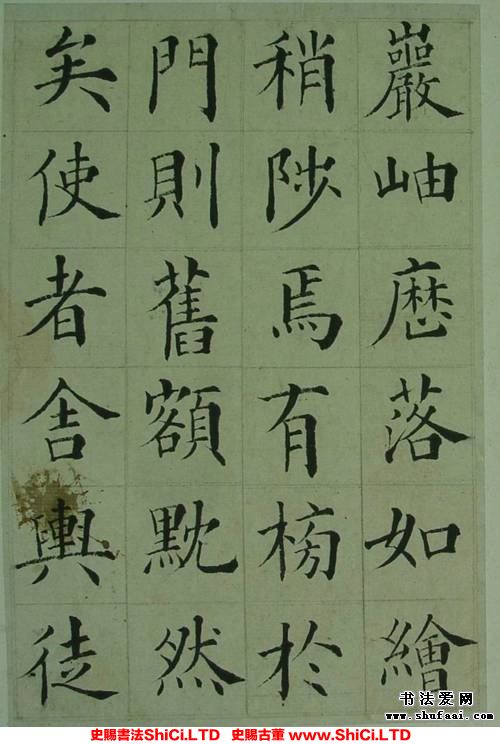 巖岫歷落如繪
稍陟焉有榜於
門則舊額黕然
矣使者舍輿徒
书法爱网
www.shufaai.com
史賜書法ShiCi.LTD 史賜古董 www.ShiCi.LTD